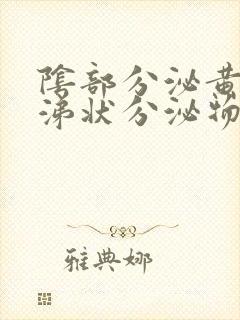 陰部分泌黃
涕狀分泌物
雅典娜